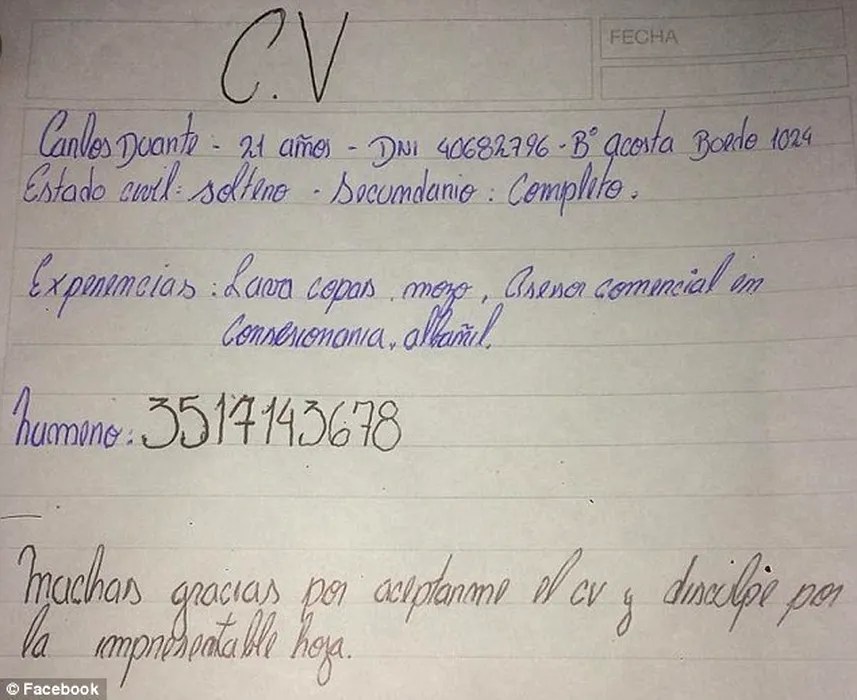 C.V
FECHA
Carlos Duarte - 21 años - DNI 40682796 - B° acosta Boedo 1024
Estado civil: soltero - Secundario: Completo.
Experiencias: Lava copas, mozo, Asesor comercial en
Consesionaria, albañil.
numero: 3517143678
Muchas gracias por aceptarme el cv y disculpe por
la impresentable hoja.
© Facebook